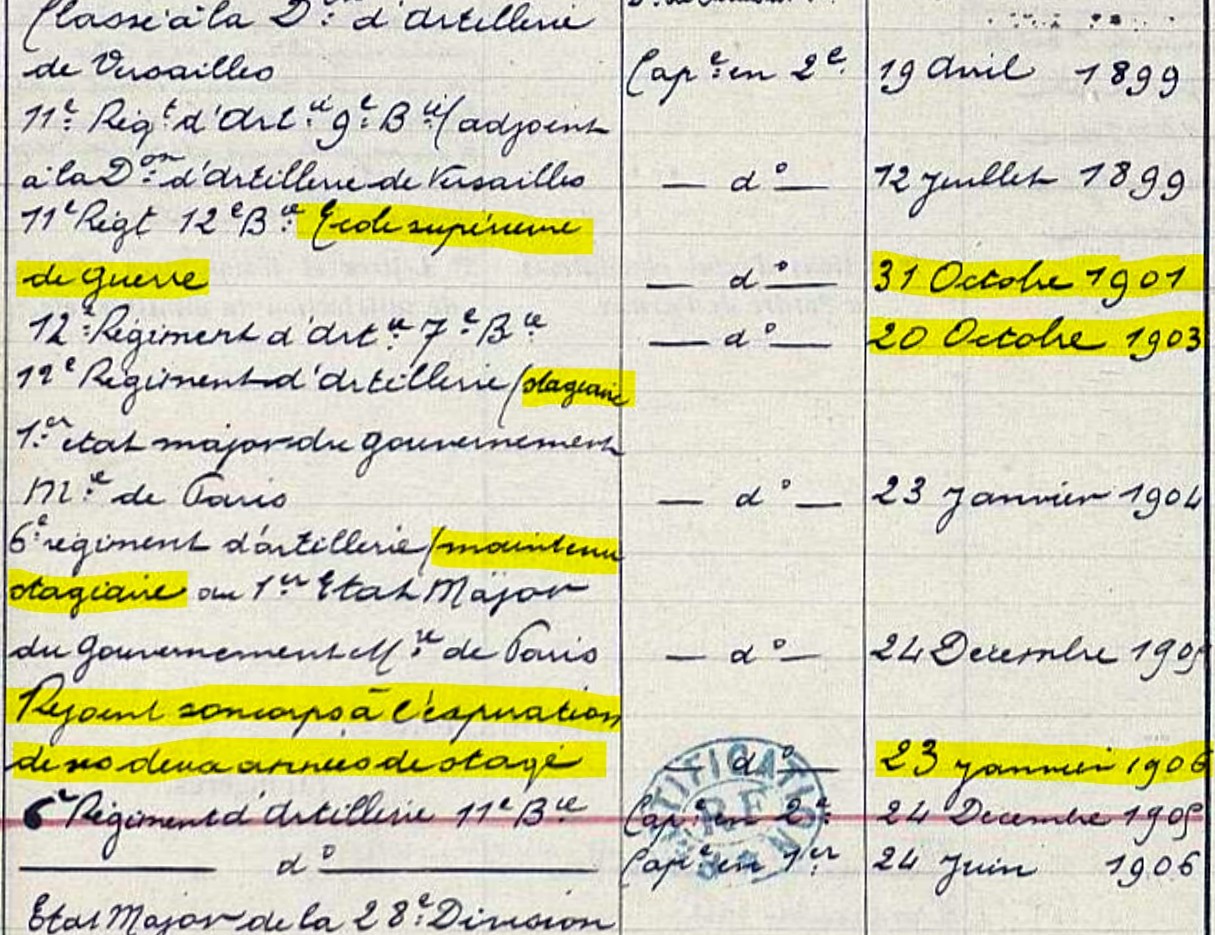 Classé à la D.on d'Artillerie
de Versailles Cap.e en 2.e 19 Avril 1899
11.e Rég.t d'Art.ie 9.e B.ie (adjoint
à la D.on d'Artillerie de Versailles — d° — 12 Juillet 1899
11e Régt 12e B.ie École supérieure
de Guerre — d° — 31 Octobre 1901
12.e Régiment d'Art.ie 7e Bie — d° — 20 Octobre 1903
12e Régiment d'Artillerie (stagiaire
1.er état major du Gouvernement
M.re de Paris — d° — 23 Janvier 1904
6.e régiment d'artillerie (maintenu
stagiaire au 1er Etat Major
du Gouvernement M.re de Paris — d° — 24 Decembre 1905
Rejoint son corps à l'expiration
de ses deux années de stage d° — 23 janvier 1906
6e Régiment d'Artillerie 11e Bie Cap.e en 2.e 24 Decembre 1905
— d° — Cap.e en 1er 24 Juin 1906
Etat Major de la 28.e Division